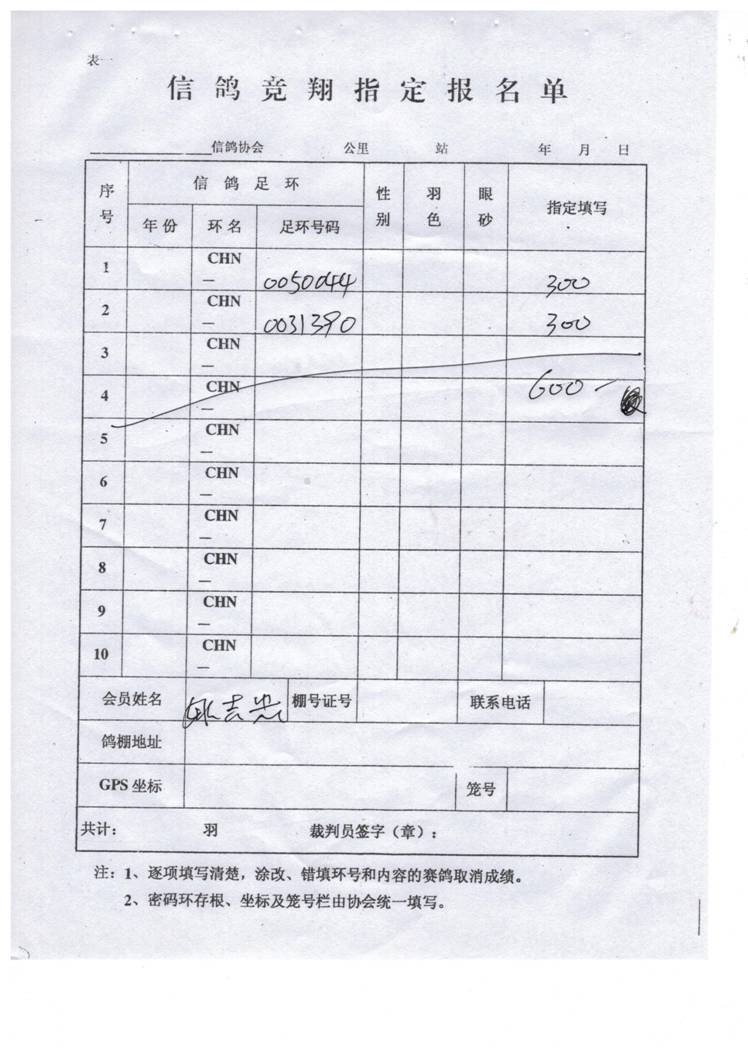 表
信鸽竞翔指定报名单
信鸽协会 公里 站 年 月 日
序号 信鸽足环 性别 羽色 眼砂 指定填写
年份 环名 足环号码
1 CHN — 0050044 300
2 CHN — 0031390 300
3 CHN —
4 CHN — 600 —
5 CHN —
6 CHN —
7 CHN —
8 CHN —
9 CHN —
10 CHN —
会员姓名 棚号证号 联系电话
鸽棚地址
GPS 坐标 笼号
共计： 羽 裁判员签字（章）：
注：1、逐项填写清楚，涂改、错填环号和内容的赛鸽取消成绩。
2、密码环存根、坐标及笼号栏由协会统一填写。